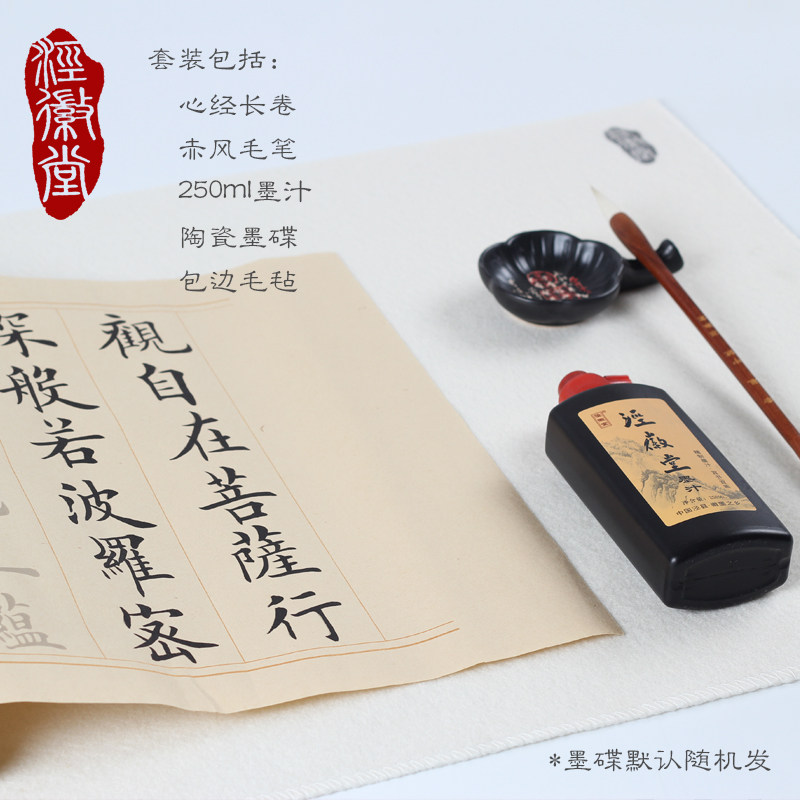 泾徽堂
套装包括：
心经长卷
赤风毛笔
250ml墨汁
陶瓷墨碟
包边毛毡
觀自在菩薩行
深般若波羅密
蘊
泾徽堂
墨汁
中国泾县
*墨碟默认随机发